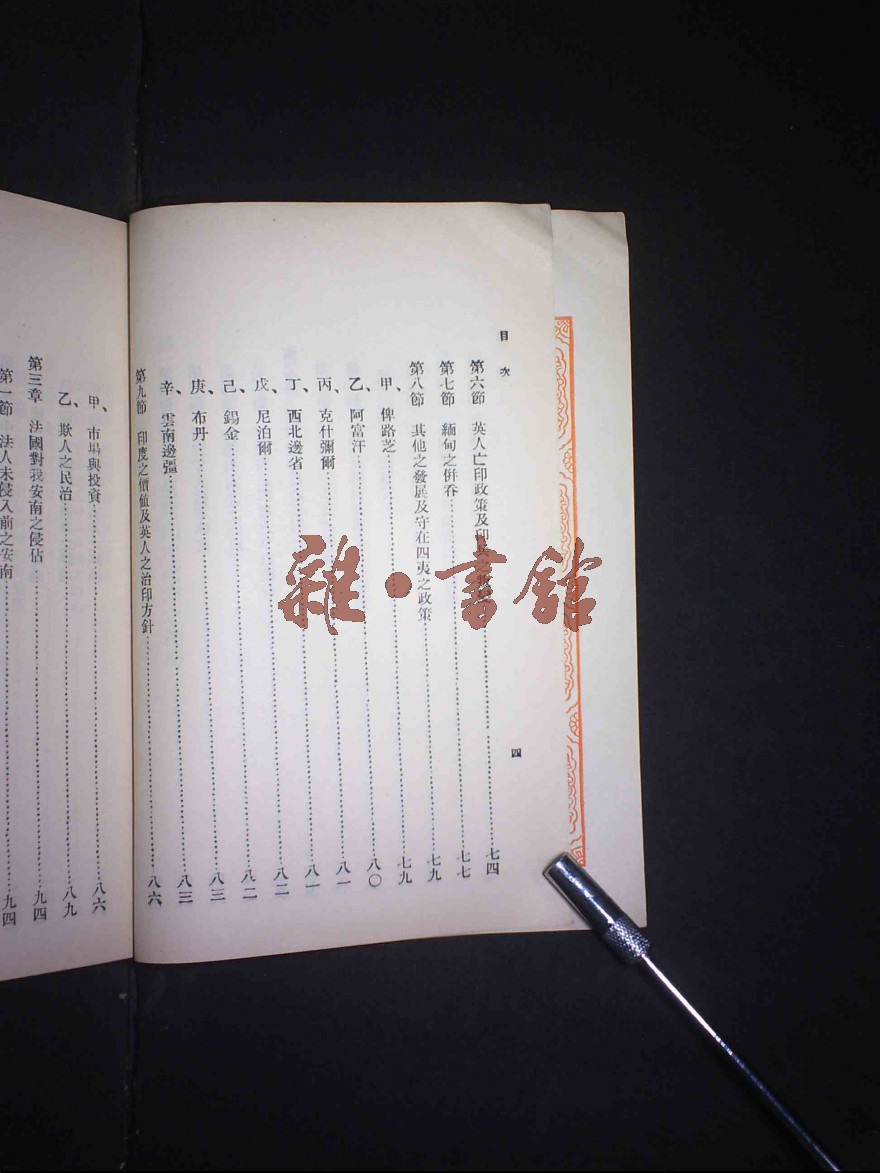 目次
四
第六節 英人亡印政策及印兵之…………七四
第七節 緬甸之併吞…………七七
第八節 其他之發展及守在四夷之政策…………七九
甲、俾路芝…………七九
乙、阿富汗…………八〇
丙、克什彌爾…………八一
丁、西北邊省…………八一
戊、尼泊爾…………八二
己、錫金…………八二
庚、布丹…………八三
辛、雲南邊疆…………八三
第九節 印度之價值及英人之治印方針…………八六
甲、市場與投資…………八六
乙、欺人之民治…………八九
第三章 法國對我安南之侵佔…………九四
第一節 法人未侵入前之安南…………九四
雜·書館